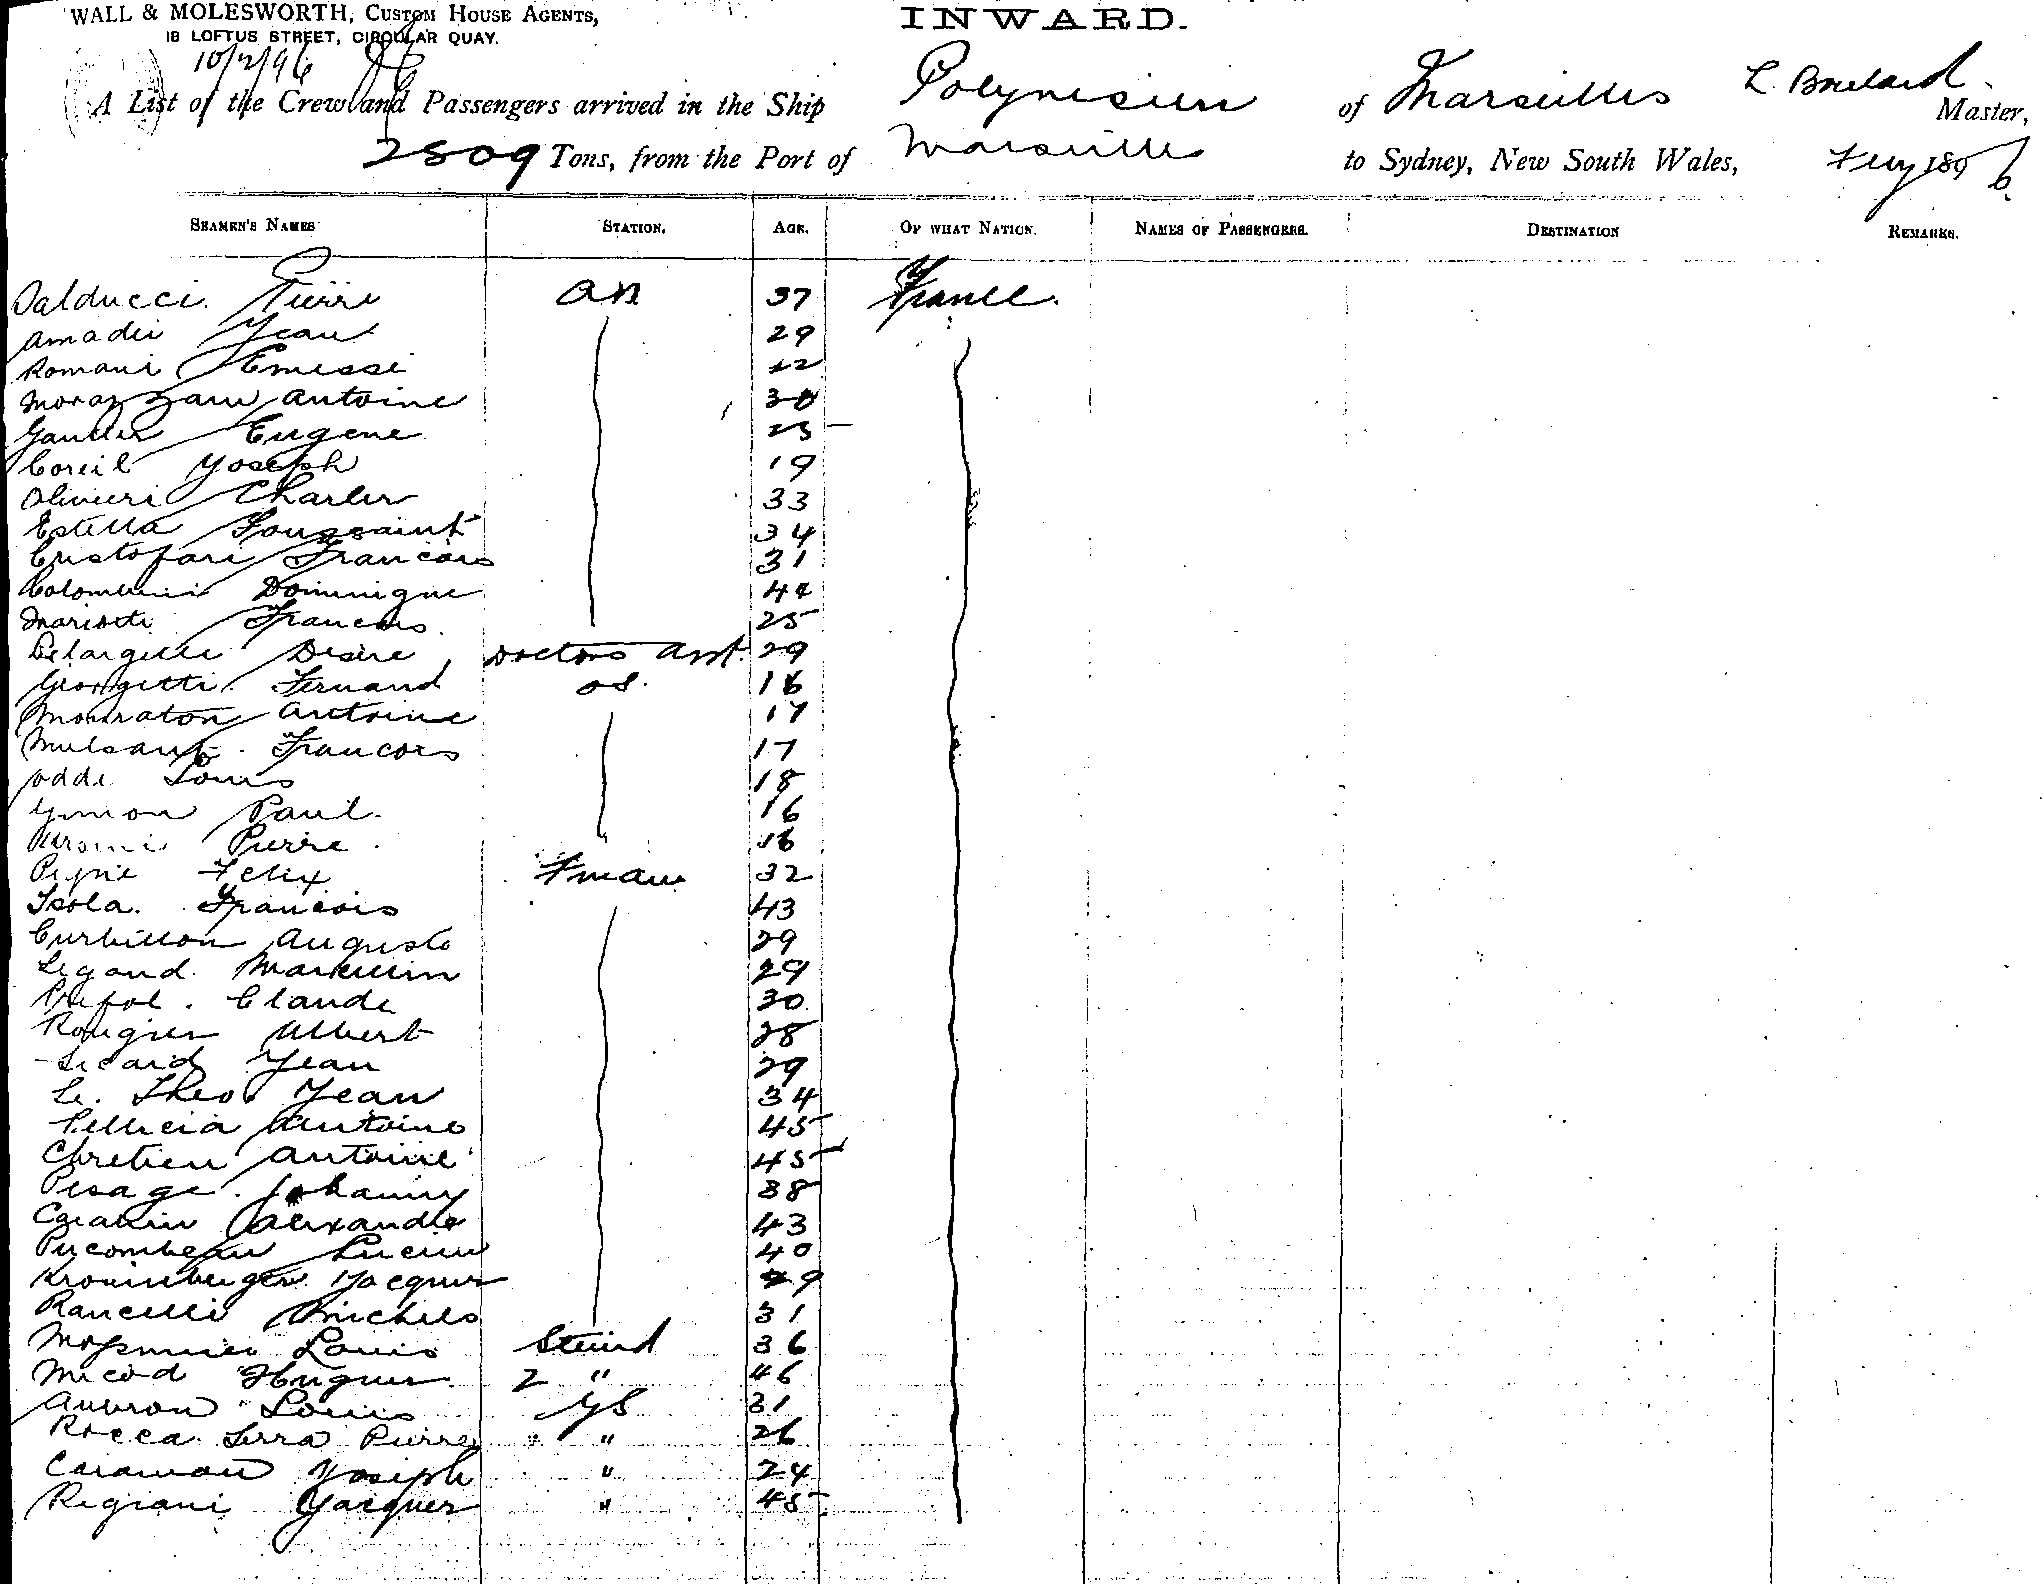 WALL & MOLESWORTH, CUSTOM HOUSE AGENTS,
18 LOFTUS STREET, CIRCULAR QUAY.
INWARD.
10/2/96
A List of the Crew and Passengers arrived in the Ship Polynesien of Marseilles L. Boulard Master,
2509 Tons, from the Port of Marseilles to Sydney, New South Wales, Feby 1896
SEAMEN'S NAMES STATION. AGE. OF WHAT NATION. NAMES OF PASSENGERS. DESTINATION REMARKS.
Balducci Pierre AB 37 France.
Amadei Jean 29
Romani
Antoine 30
Gautier Eugene 25
Coreil Joseph 19
Olivieri Charles 33
Estella Toussaint 34
Cristofari Francois 31
Colombani Dominique 44
Mariotti Francois 25
Desire Doctors asst. 29
Georgetti Fernand OS. 16
Antoine 17
Mulsant Francois 17
Odde Louis 18
Paul. 16
Pierre 16
Felix Fman 32
Isola. Francois 43
Curbillon Auguste 29
Legand 29
Claude 30
Rougier Albert 28
Sicard Jean 29
Le. Theo Jean 34
Antoine 45
Chretien Antoine 45
Pesage Johanny 38
Alexandre 43
Lucien 40
Kronenberger Jacques
31
Louis Steward 36
Micod Hugues 2 " 46
Aubron Louis 31
Rocca Serra Pierre " " 26
Caraman Joseph " 24
Regiani Jacques " 45